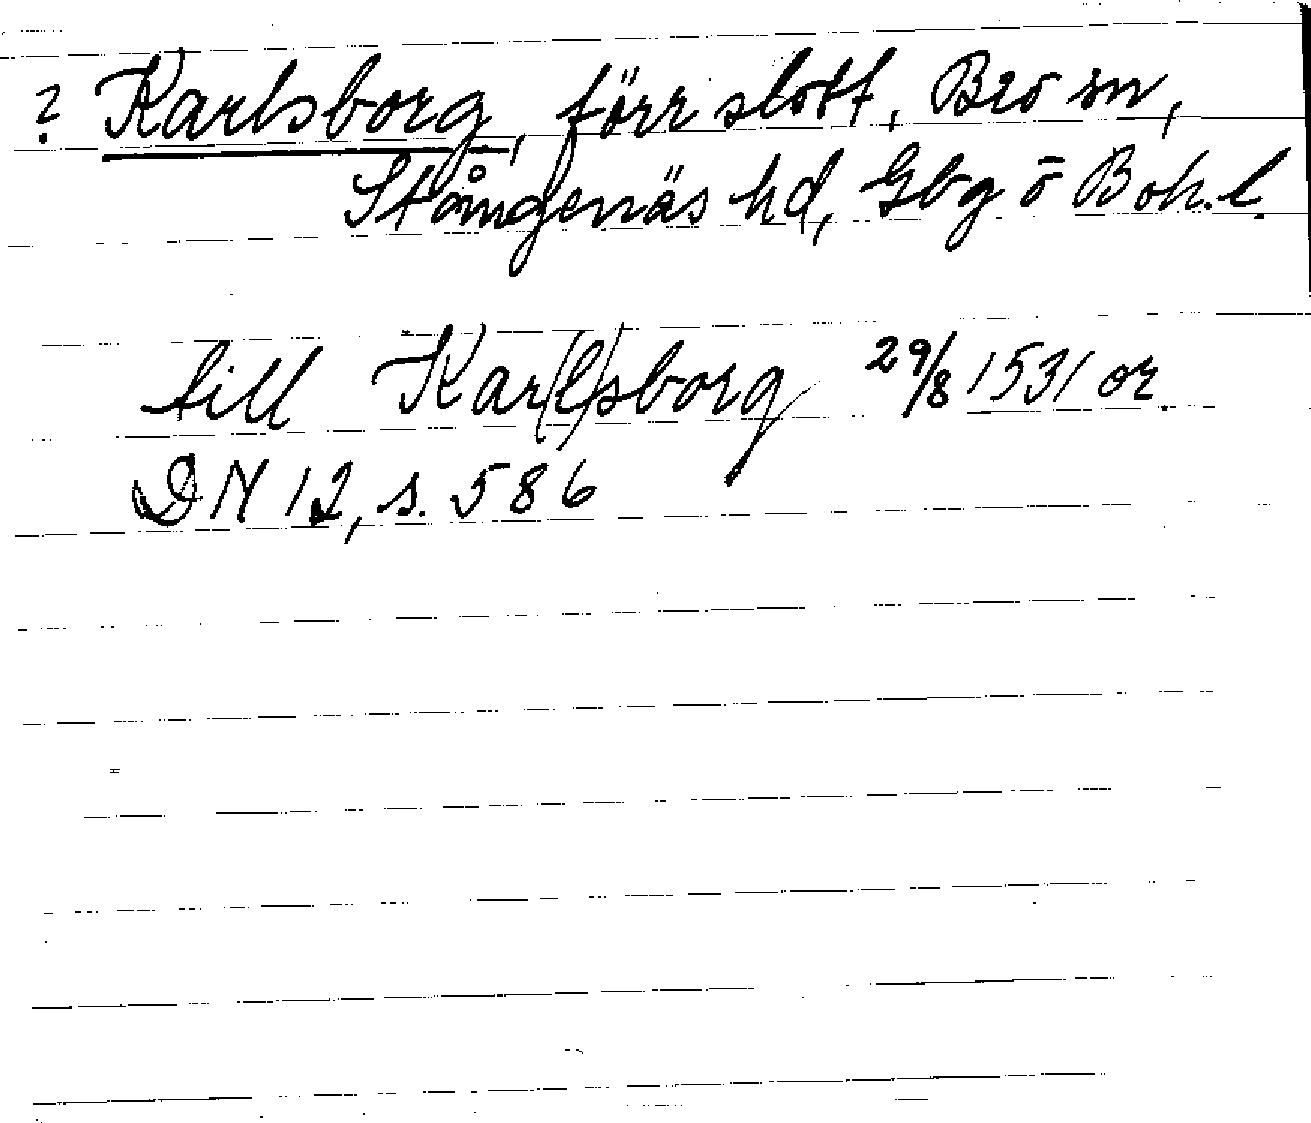 ? Karlsborg, förr slott, Bro sn,
Stångenäs hd, Gbg o Boh. l.
till Kar(l)sborg 29/8 1531 or.
DN 12, s. 586